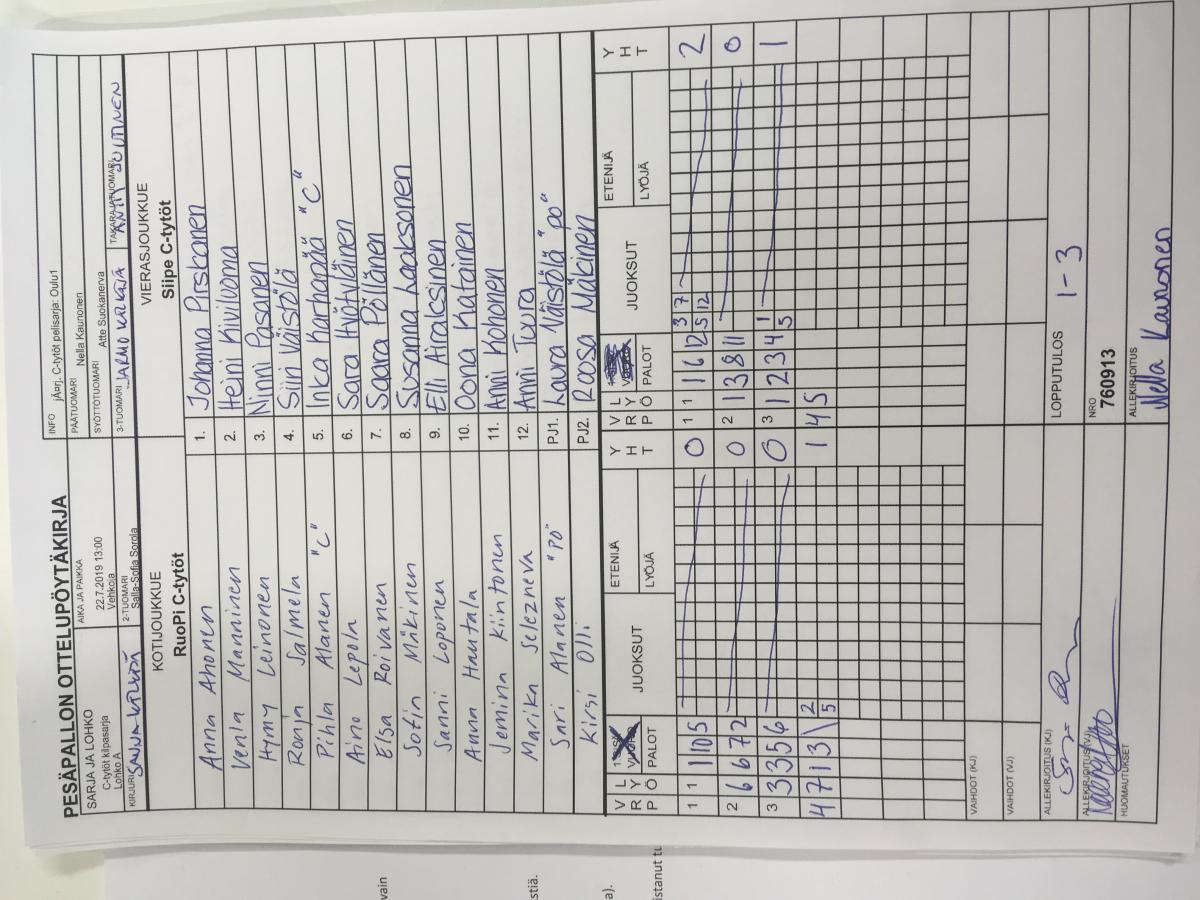 PESÄPALLON OTTELUPÖYTÄKIRJA
SARJA JA LOHKO
C-tytöt kilpasarja
Lohko A
AIKA JA PAIKKA
22.7.2019 13:00
Vehkoja
INFO jÄ¤rj. C-tytöt pelisarja: Oulu1
PÄÄTUOMARI Nella Kaunonen
SYÖTTÖTUOMARI Atte Suokanerva
KIRJURI
2-TUOMARI
Salla-Sofia Sorola
3-TUOMARI JARMO
TAKARAJATUOMARI
KOTIJOUKKUE
RuoPi C-tytöt
VIERASJOUKKUE
Siipe C-tytöt
Anna Ahonen 1. Johanna Pirskanen
Venla Manninen 2. Heini Kivilvoma
Hymy Leinonen 3. Ninni Pasanen
Ronja Salmela 4. Siiri Väistölä
Pihla Alanen "C" 5. Inka Karhapää "C"
Aino Lepola 6. Sara Hyötyläinen
Elsa Roivanen 7. Saara Pöllänen
Sotin Mäkinen 8. Susanna Laaksonen
Sanni Loponen 9. Elli Airaksinen
Anna Hautala 10. Oona Katainen
Jemina Kiintonen 11. Anni Kohonen
Marika Selezneva 12. Anni Tuura
Sari Alanen "PO" PJ1. Laura Väistölä "po"
Kirsi Olli PJ2. Roosa Mäkinen
V R P L Y Ö PALOT JUOKSUT ETENIJÄ LYÖJÄ Y H T V R P L Y Ö PALOT JUOKSUT ETENIJÄ LYÖJÄ Y H T
1 1 1 10 5 0 1 1 1 6 12 3 7 5 12 2
2 6 6 7 2 0 2 1 3 8 11 0
3 3 3 5 6 0 3 1 2 3 4 1 5 1
4 7 1 3 1 2 5 1 4 5
VAIHDOT (KJ)
VAIHDOT (VJ)
ALLEKIRJOITUS (KJ)
LOPPUTULOS 1-3
ALLEKIRJOITUS (VJ)
NRO
760913
HUOMAUTUKSET
ALLEKIRJOITUS
Nella Kaunonen
vain
stiä.
a).
istanut tu